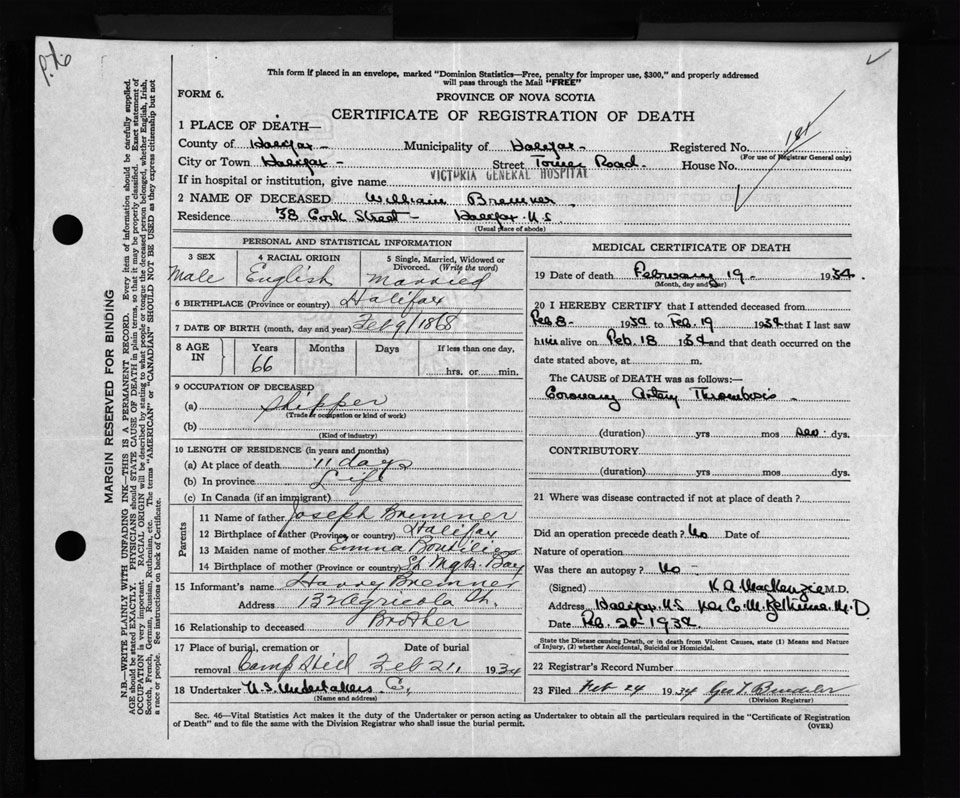 P.76
This form if placed in an envelope, marked "Dominion Statistics—Free, penalty for improper use, $300," and properly addressed
will pass through the Mail "FREE"
FORM 6.
PROVINCE OF NOVA SCOTIA
CERTIFICATE OF REGISTRATION OF DEATH
1 PLACE OF DEATH—
County of Halifax - Municipality of Halifax - Registered No.
(For use of Registrar General only)
City or Town Halifax - Street Tower Road. House No.
If in hospital or institution, give name VICTORIA GENERAL HOSPITAL
2 NAME OF DECEASED William Bremner
Residence 38 Cork Street - Halifax N.S.
(Usual place of abode)
PERSONAL AND STATISTICAL INFORMATION
3 SEX 4 RACIAL ORIGIN 5 Single, Married, Widowed or
Divorced. (Write the word)
Male English Married
6 BIRTHPLACE (Province or country) Halifax
7 DATE OF BIRTH (month, day and year) Feb 9/1868
8 AGE IN Years Months Days If less than one day,
66 hrs. or min.
9 OCCUPATION OF DECEASED
(a) Shipper
(Trade or occupation or kind of work)
(b)
(Kind of industry)
10 LENGTH OF RESIDENCE (in years and months)
(a) At place of death 11 days
(b) In province Life
(c) In Canada (if an immigrant)
Parents
11 Name of father Joseph Bremner
12 Birthplace of father (Province or country) Halifax
13 Maiden name of mother Emma Boutilier
14 Birthplace of mother (Province or country) St Mgts. Bay
15 Informant's name Harry Bremner
Address 132 Agricola St.
16 Relationship to deceased Brother
17 Place of burial, cremation or Date of burial
removal Camp Hill Feb 21, 1934
18 Undertaker N.S. Undertakers Co,
(Name and address)
MEDICAL CERTIFICATE OF DEATH
19 Date of death February 19 - 1934.
(Month, day and year)
20 I HEREBY CERTIFY that I attended deceased from
Feb 8 - 1934 to Feb. 19 1934 that I last saw
him alive on Feb. 18 1934 and that death occurred on the
date stated above, at m.
The CAUSE of DEATH was as follows:—
Coronary Artery Thrombosis
(duration) yrs mos dys.
CONTRIBUTORY
(duration) yrs mos dys.
21 Where was disease contracted if not at place of death?
Did an operation precede death? No Date of
Nature of operation
Was there an autopsy? No -
(Signed) K.A. MacKenzie M.D.
Address Halifax N.S Per C. M. M.D
Date Feb. 20 - 1934
State the Disease causing Death, or in death from Violent Causes, state (1) Means and Nature
of Injury, (2) whether Accidental, Suicidal or Homicidal.
22 Registrar's Record Number
23 Filed Feb 24 1934 Geo T.
(Division Registrar)
Sec. 46—Vital Statistics Act makes it the duty of the Undertaker or person acting as Undertaker to obtain all the particulars required in the "Certificate of Registration
of Death" and to file the same with the Division Registrar who shall issue the burial permit.
(OVER)
MARGIN RESERVED FOR BINDING
N.B.—WRITE PLAINLY WITH UNFADING INK—THIS IS A PERMANENT RECORD. Every item of information should be carefully supplied.
AGE should be stated EXACTLY. PHYSICIANS should STATE CAUSE OF DEATH in plain terms, so that it may be properly classified. Exact statement of
OCCUPATION is very important. RACIAL ORIGIN will be described by stating to what people or tongue the deceased person belonged, whether English, Irish,
Scotch, French, German, Russian, Ruthenian, etc. The terms "AMERICAN" or "CANADIAN" SHOULD NOT BE USED as they express citizenship but not
a race or people. See instructions on back of Certificate.